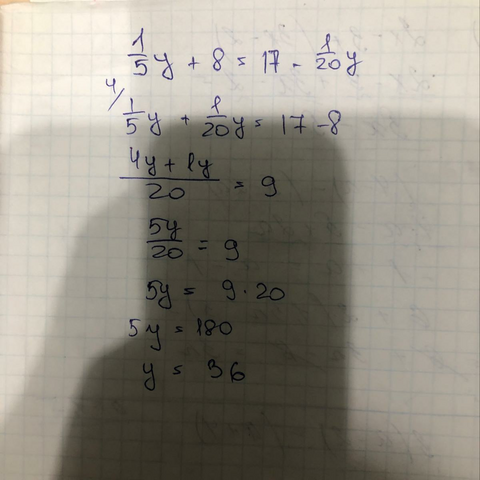 1/5 y + 8 = 17 - 1/20 y
4/ 1/5 y + 1/20 y = 17 - 8
4y + 1y / 20 = 9
5y / 20 = 9
5y = 9 · 20
5y = 180
y = 36